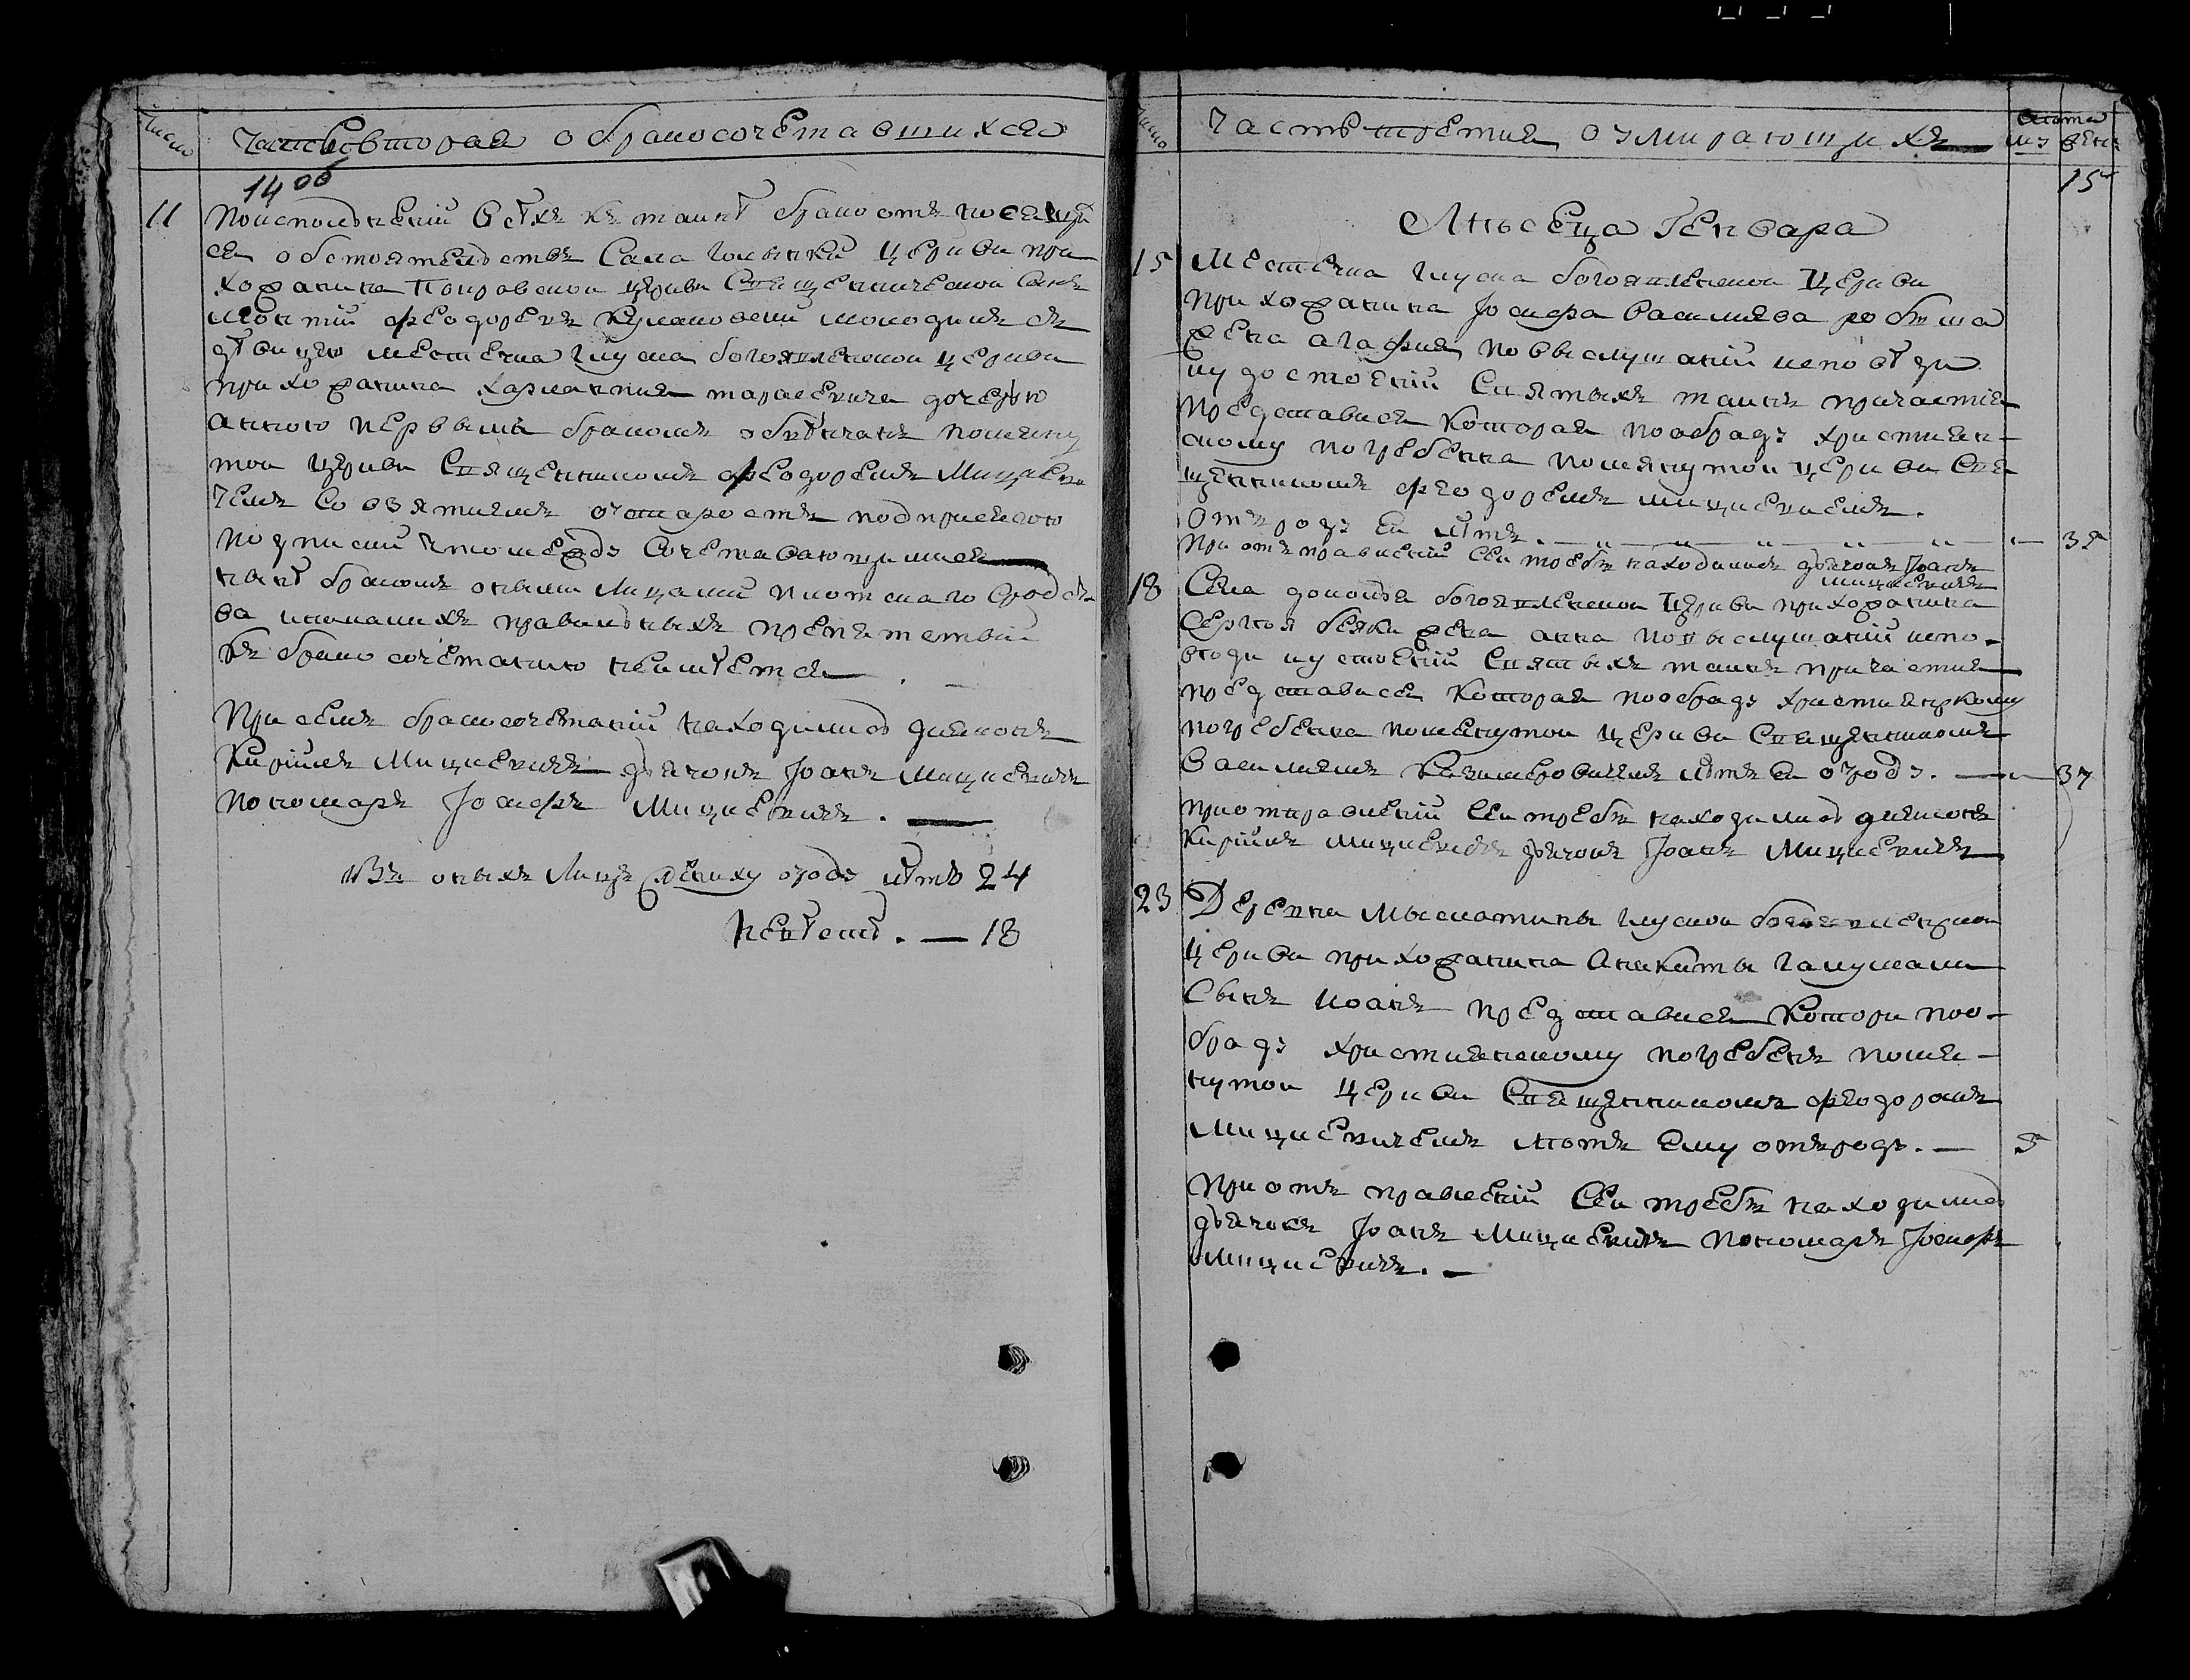 Число
Часть вторая о бракосочетавшихся
14 об
11
Поисполнении всѣхъ къ таинѣ брако отъ носящи
ся обстоятельствъ Села церкви при
хожанина Покровской церкви Священнической Сынъ
Леонтий Феодоревъ молодикъ съ
дѣвицею местечка Глуска богоявленской церкви
прихожанина Харлампия Тарасевича дочерью
анною первымъ бракомъ обвѣнчанъ помяну
той церкви Священникомъ Феодоремъ Мицкеви
чемъ Со взятиемъ
подписки что между Сочетавающимися
бракомъ оными Лицами плотскаго Сродст
ва и никакихъ правильныхъ препятствий
къ бракосочетанию неимѣется .
При семъ бракосочетании находились диаконъ
Кирилъ Мицкевичъ дьячокъ Иоанъ Мицкевичъ
пономаръ Иосифъ Мицкевичъ .
Въ оныхъ Лицъ жениху отроду лѣтъ 24
невѣстѣ . — 18
Число
Часть третия о умирающихъ
Лѣта
муз жен
15
Мѣсеца Генваря
15
Местечка Глуска богоявленской Церкви
прихожанина Иосифа Василиева
жена агафия по выслушании исповѣди
и удостоении Святыхъ таинъ причастия
представися Которая по обраду християн-
скому погребенна помянутой церкви Свя
щенникомъ Феодоремъ Мицкевичемъ .
Отъ роду ей лѣтъ . — — — — — 35
При отъправлении Сей требы находился дьячокъ Иоанъ
Мицкевичъ
18
Села богоявленской Церкви прихожанина
Сергѣя жена анна по выслушании испо-
вѣди и удостоении Святыхъ таинъ причастия
представися Которая по обраду християнскому
погребенна помянутой церкви Священникомъ
Василиемъ Казимеровичемъ лѣтъ ей отроду . — 37
При отправлении Сей требы находились диаконъ
Кирилъ Мицкевичъ дьячокъ Иоанъ Мицкевичъ
23
Деревни Мыслотины Глуской богоявленской
церкви прихожанина Аникиты
Сынъ Иоанъ представися Которй поо-
браду християнскому погребенъ помя-
нутой Церкви Священникомъ Феодоромъ
Мицкевичемъ лѣтъ ему отъроду . — 5
При отъправлении Сей требы находились
дьячокъ Иоанъ Мицкевичъ пономаръ Иосифъ
Мицкевичъ . —